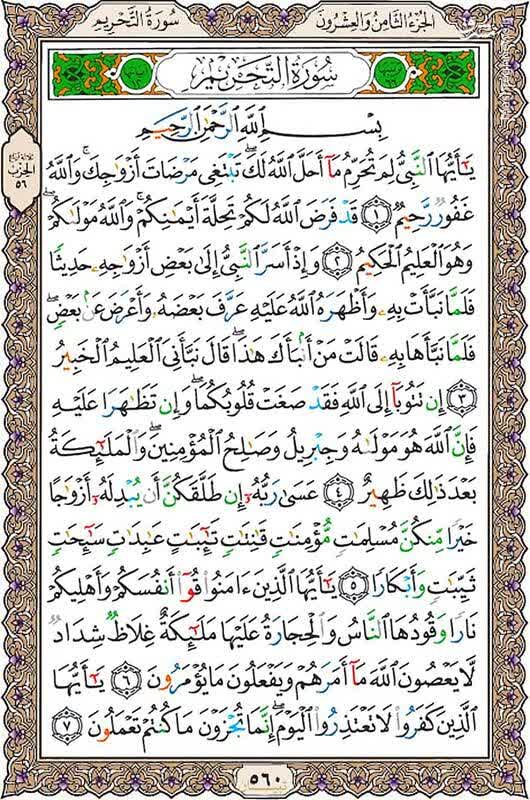 الجُزْءُ الثَّامِنُ وَالعِشْرُونَ
سُورَةُ التَّحْرِيمِ
سُورَةُ التَّحْرِيمِ
بِسْمِ ٱللَّهِ ٱلرَّحْمَٰنِ ٱلرَّحِيمِ
يَٰٓأَيُّهَا ٱلنَّبِىُّ لِمَ تُحَرِّمُ مَآ أَحَلَّ ٱللَّهُ لَكَ ۖ تَبْتَغِى مَرْضَاتَ أَزْوَٰجِكَ ۚ وَٱللَّهُ
غَفُورٌ رَّحِيمٌ ١ قَدْ فَرَضَ ٱللَّهُ لَكُمْ تَحِلَّةَ أَيْمَٰنِكُمْ ۚ وَٱللَّهُ مَوْلَىٰكُمْ ۖ
وَهُوَ ٱلْعَلِيمُ ٱلْحَكِيمُ ٢ وَإِذْ أَسَرَّ ٱلنَّبِىُّ إِلَىٰ بَعْضِ أَزْوَٰجِهِۦ حَدِيثًا
فَلَمَّا نَبَّأَتْ بِهِۦ وَأَظْهَرَهُ ٱللَّهُ عَلَيْهِ عَرَّفَ بَعْضَهُۥ وَأَعْرَضَ عَنۢ بَعْضٍ ۖ
فَلَمَّا نَبَّأَهَا بِهِۦ قَالَتْ مَنْ أَنۢبَأَكَ هَٰذَا ۖ قَالَ نَبَّأَنِىَ ٱلْعَلِيمُ ٱلْخَبِيرُ
٣ إِن تَتُوبَآ إِلَى ٱللَّهِ فَقَدْ صَغَتْ قُلُوبُكُمَا ۖ وَإِن تَظَٰهَرَا عَلَيْهِ
فَإِنَّ ٱللَّهَ هُوَ مَوْلَىٰهُ وَجِبْرِيلُ وَصَٰلِحُ ٱلْمُؤْمِنِينَ ۖ وَٱلْمَلَٰٓئِكَةُ
بَعْدَ ذَٰلِكَ ظَهِيرٌ ٤ عَسَىٰ رَبُّهُۥٓ إِن طَلَّقَكُنَّ أَن يُبْدِلَهُۥٓ أَزْوَٰجًا
خَيْرًا مِّنكُنَّ مُسْلِمَٰتٍ مُّؤْمِنَٰتٍ قَٰنِتَٰتٍ تَٰٓئِبَٰتٍ عَٰبِدَٰتٍ سَٰٓئِحَٰتٍ
ثَيِّبَٰتٍ وَأَبْكَارًا ٥ يَٰٓأَيُّهَا ٱلَّذِينَ ءَامَنُوا۟ قُوٓا۟ أَنفُسَكُمْ وَأَهْلِيكُمْ
نَارًا وَقُودُهَا ٱلنَّاسُ وَٱلْحِجَارَةُ عَلَيْهَا مَلَٰٓئِكَةٌ غِلَاظٌ شِدَادٌ
لَّا يَعْصُونَ ٱللَّهَ مَآ أَمَرَهُمْ وَيَفْعَلُونَ مَا يُؤْمَرُونَ ٦ يَٰٓأَيُّهَا
ٱلَّذِينَ كَفَرُوا۟ لَا تَعْتَذِرُوا۟ ٱلْيَوْمَ ۖ إِنَّمَا تُجْزَوْنَ مَا كُنتُمْ تَعْمَلُونَ ٧
الحِزْب
٥٦
٥٦٠